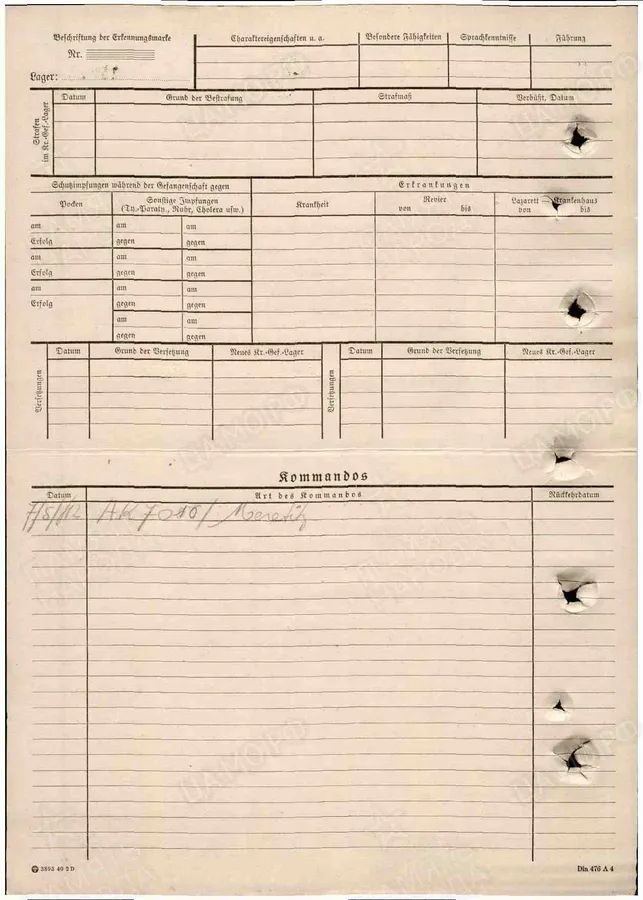 Beschriftung der Erkennungsmarke
Nr.
Lager:
Charaktereigenschaften u. a.
Besondere Fähigkeiten
Sprachkenntnisse
Führung
Strafen im Kr.-Gef.-Lager
Datum
Grund der Bestrafung
Strafmaß
Verbüßt, Datum
Schutzimpfungen während der Gefangenschaft gegen
Erkrankungen
Pocken
Sonstige Impfungen
(Ty.-Paraty., Ruhr, Cholera usw.)
Krankheit
Revier
von bis
Lazarett — Krankenhaus
von bis
am am am
Erfolg gegen gegen
am am am
Erfolg gegen gegen
am am am
Erfolg gegen gegen
am am
gegen gegen
Versetzungen
Datum
Grund der Versetzung
Neues Kr.-Gef.-Lager
Versetzungen
Datum
Grund der Versetzung
Neues Kr.-Gef.-Lager
Kommandos
Datum
Art des Kommandos
Rückkehrdatum
AK
3893 40 2 D
Din 476 A 4
ЦАМО РФ